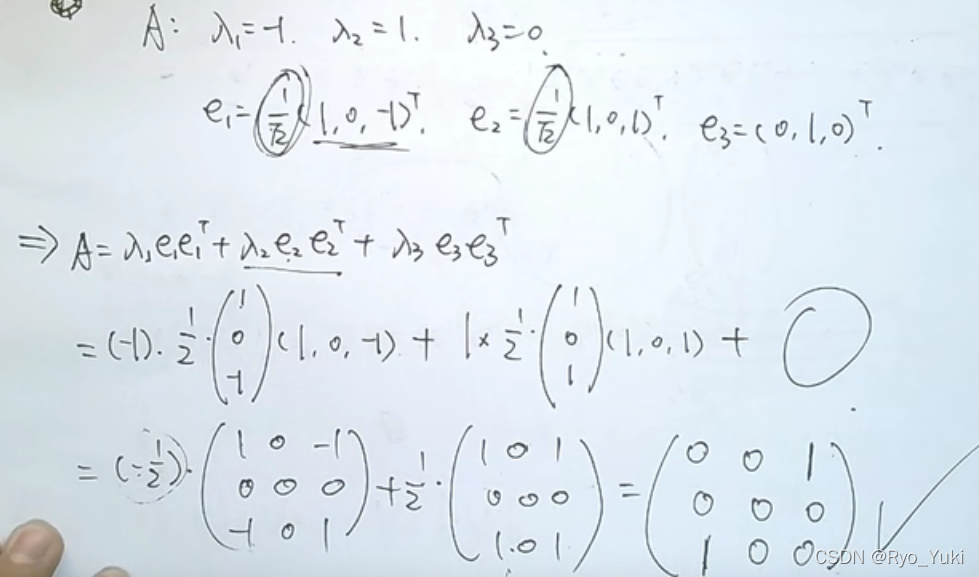 A: λ₁=-1. λ₂=1. λ₃=0.
e₁=1/√2(1,0,-1)ᵀ. e₂=1/√2(1,0,1)ᵀ. e₃=(0,1,0)ᵀ.
⇒ A=λ₁e₁e₁ᵀ+λ₂e₂e₂ᵀ+λ₃e₃e₃ᵀ
=(-1)·1/2·(1 0 -1)(1,0,-1)+1×1/2·(1 0 1)(1,0,1)+0
=(-1/2)·(1 0 -1 0 0 0 -1 0 1)+1/2·(1 0 1 0 0 0 1 0 1)=(0 0 1 0 0 0 1 0 0)✓
CSDN @Ryo_Yuki